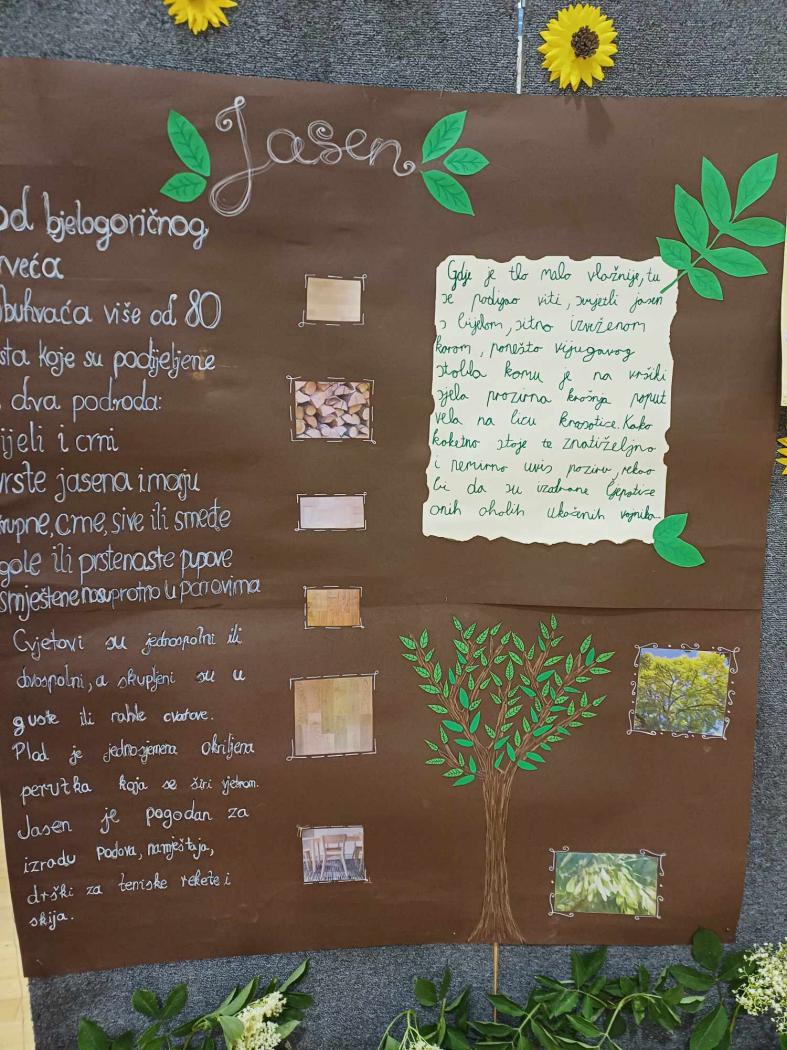 Jasen
od bjelogoričnog
rveća
buhvaća više od 80
sta koje su podijeljene
dva podroda:
ijeli i crni
vrste jasena imaju
rupne, crne, sive ili smeđe
gole ili prstenaste pupove
smještene nasuprotno u parovima
Cvjetovi su jednospolni ili
dvospolni, a skupljeni su u
guste ili rahle cvatove.
Plod je jednosjemena okriljena
perutka koja se širi vjetrom.
Jasen je pogodan za
izradu podova, namještaja,
drški za teniske rekete i
skija.
Gdje je tlo malo vlažnije, tu
se podigao viti, svijetli jasen
s bijelom, sitno izveženom
korom, ponešto vijugavog
stabla komu je na vršiki
sjela prozirna krošnja poput
vela na licu krasotice. Kako
koketno stoje te znatiželjno
i nemirno uvis poziru, rekao
bi da su izabrane ljepotice
onih oholih ukočenih vojnika.